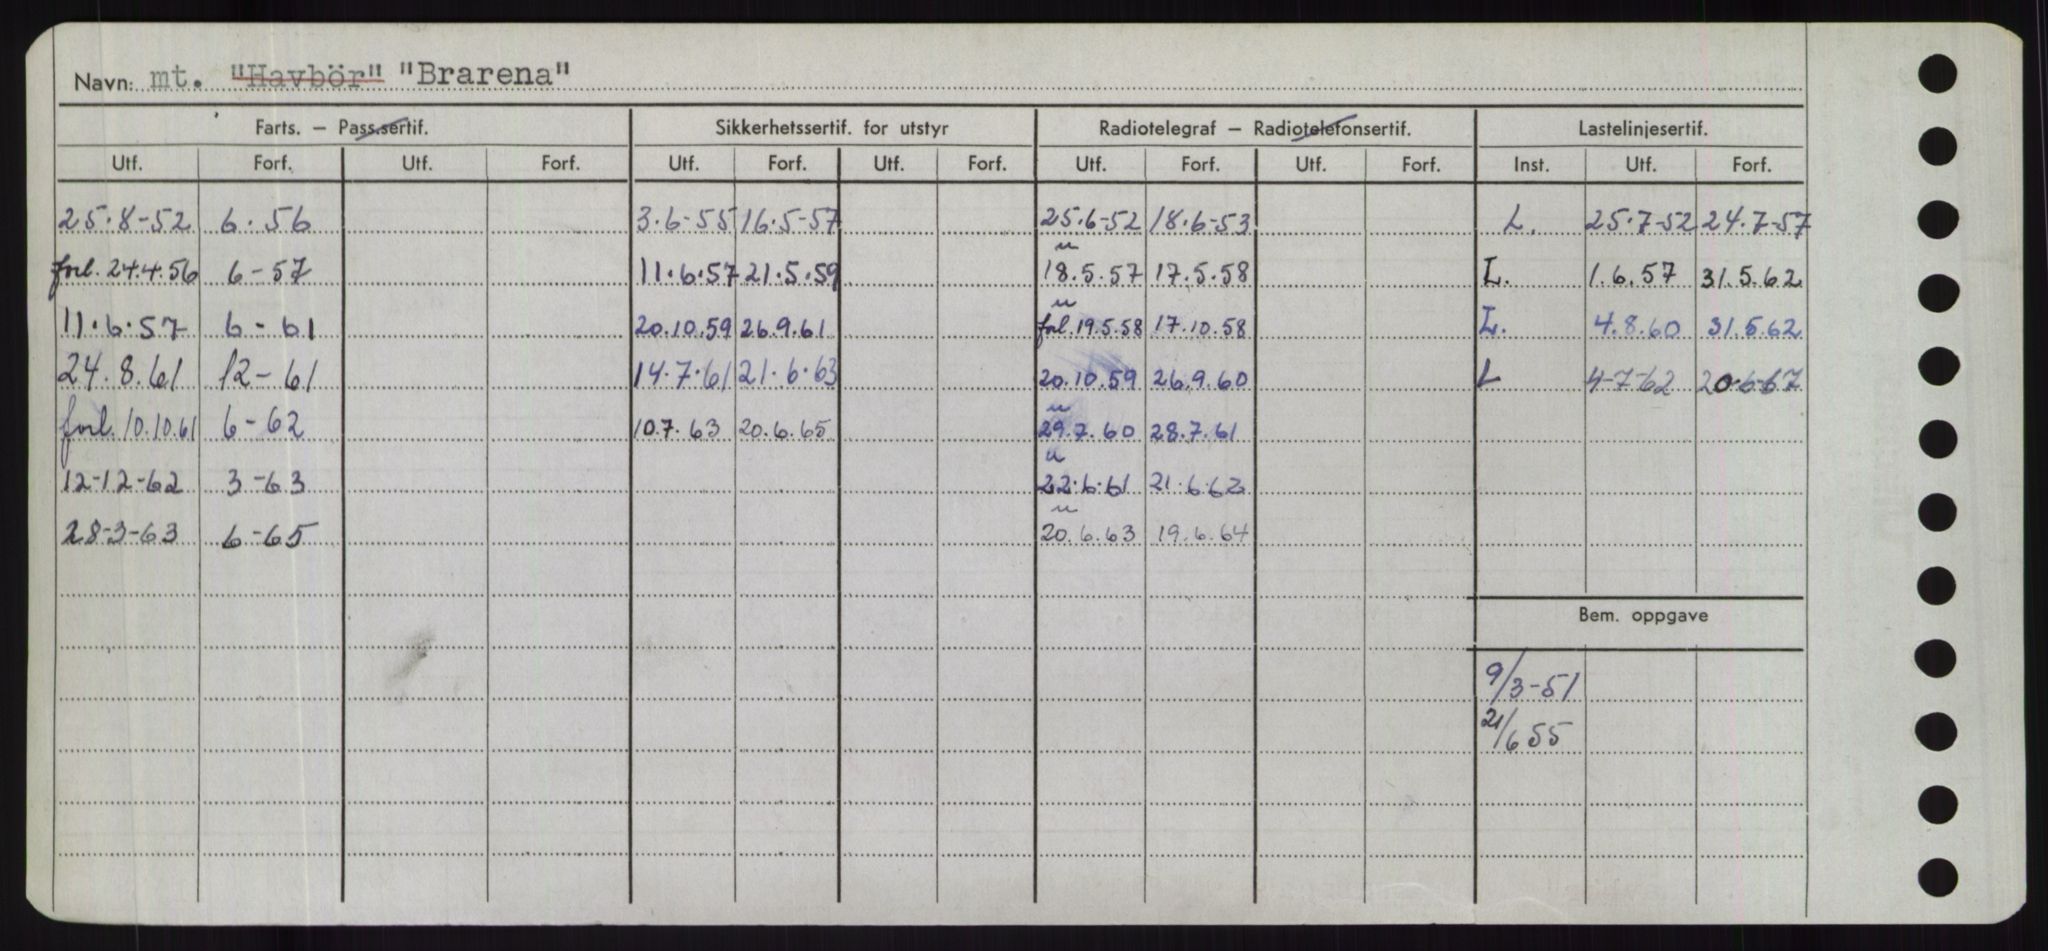 Navn: mt. "Havbör" "Brarena"
Farts. – Pass.sertif. Sikkerhetssertif. for utstyr Radiotelegraf – Radiotelefonsertif. Lastelinjesertif.
Utf. Forf. Utf. Forf. Utf. Forf. Utf. Forf. Utf. Forf. Utf. Forf. Inst. Utf. Forf.
25.8-52 6.56 3.6-55 16.5-57 25.6-52 18.6-53 L. 25.7-52 24.7-57
forl. 24.4.56 6-57 11.6.57 21.5.59 u 18.5.57 17.5.58 L. 1.6.57 31.5.62
11.6.57 6-61 20.10.59 26.9.61 u forl. 19.5.58 17.10.58 L. 4.8.60 31.5.62
24.8.61 12-61 14.7.61 21.6.63 20.10.59 26.9.60 L 4-7-62 20-6-67
forl. 10.10.61 6-62 10.7.63 20.6.65 u 29.7.60 28.7.61
12-12-62 3-63 u 22.6.61 21.6.62
28-3-63 6-65 u 20.6.63 19.6.64
Bem. oppgave
9/3-51
21/6 55